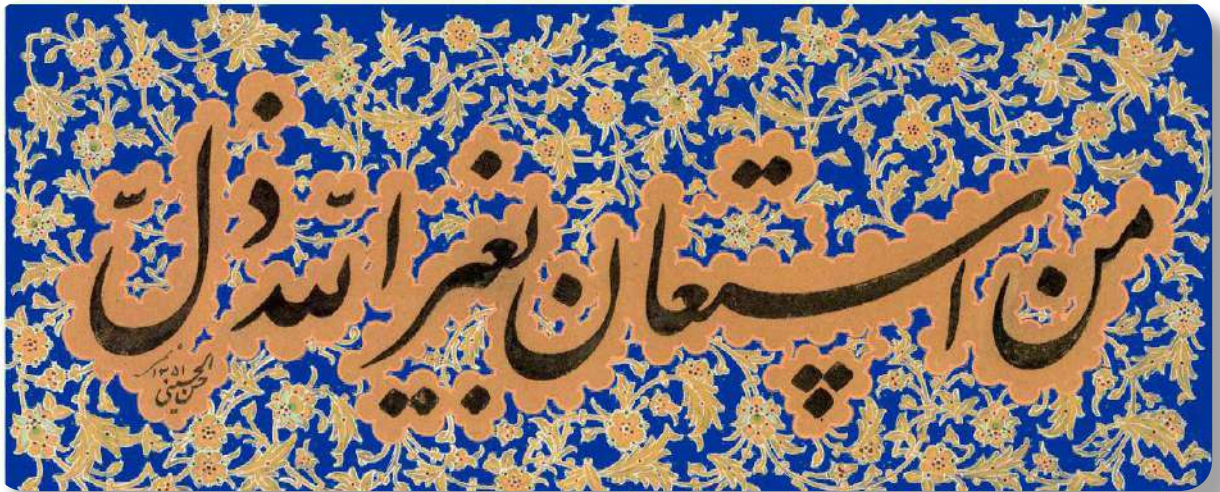 من استعان بغیر الله ذلّ
حسن الحسینی ۱۳۵۱